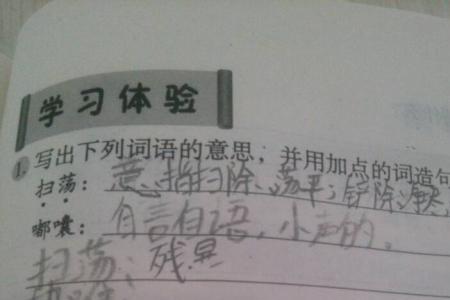 学习体验
1. 写出下列词语的意思，并用加点的词造句
扫荡：意：指扫除、荡平；铲除；
嘟囔：自言自语，小声的。
扫荡：残暴